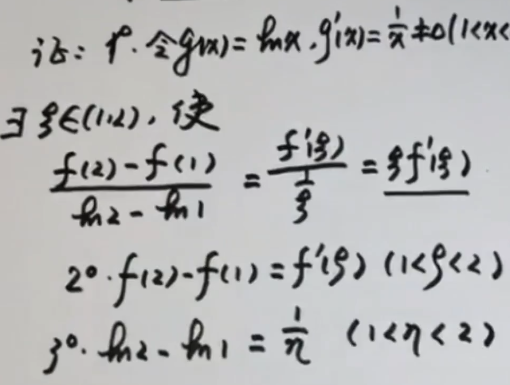 证: 1°. 令g(x)=lnx, g'(x)=1/x≠0(1<x<
∃ξ∈(1,2), 使
(f(2)-f(1))/(ln2-ln1) = f'(ξ)/(1/ξ) = ξf'(ξ)
2°. f(2)-f(1)=f'(ρ) (1<ρ<2)
3°. ln2-ln1=1/η (1<η<2)